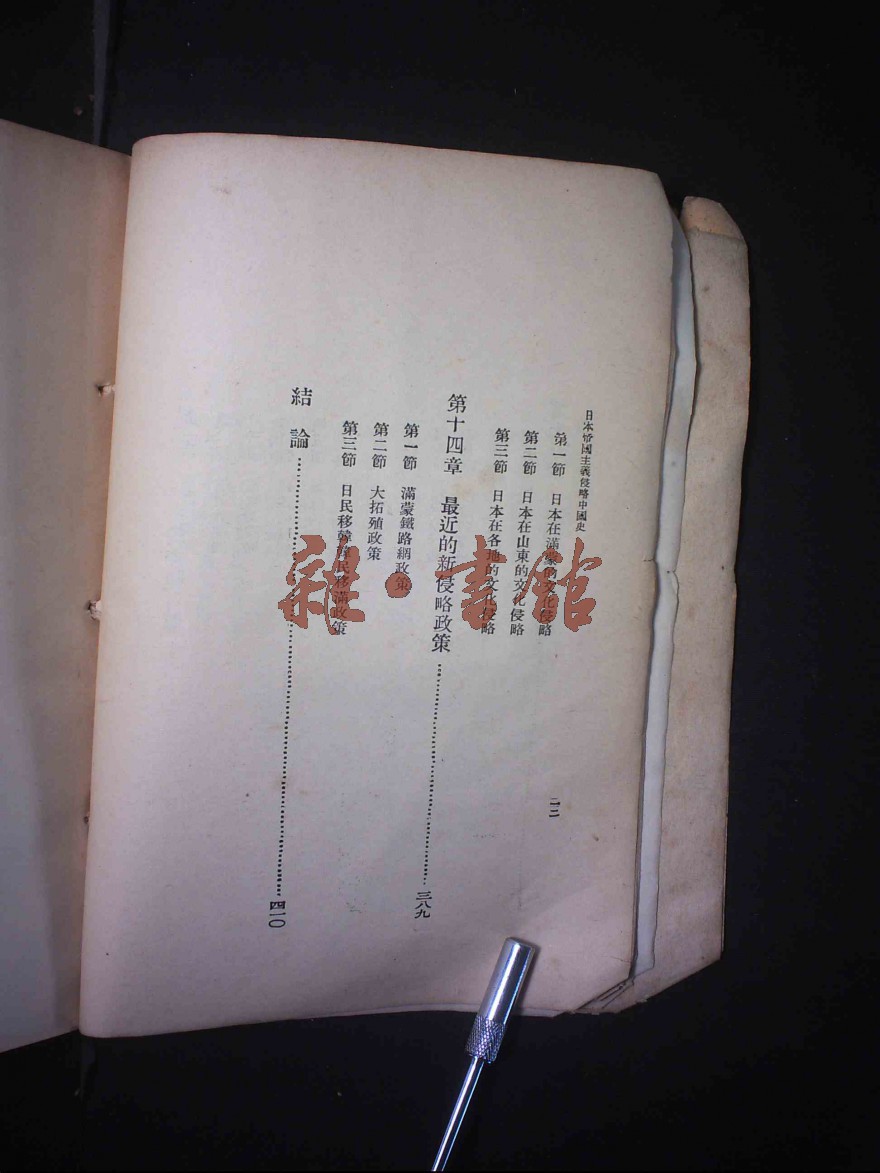 日本帝國主義侵略中國史
第一節 日本在滿蒙的文化侵略
第二節 日本在山東的文化侵略
第三節 日本在各地的文化侵略
第十四章 最近的新侵略政策……三八九
第一節 滿蒙鐵路網政策
第二節 大拓殖政策
第三節 日民移韓韓民移滿政策
結論……四一〇
雜·書館